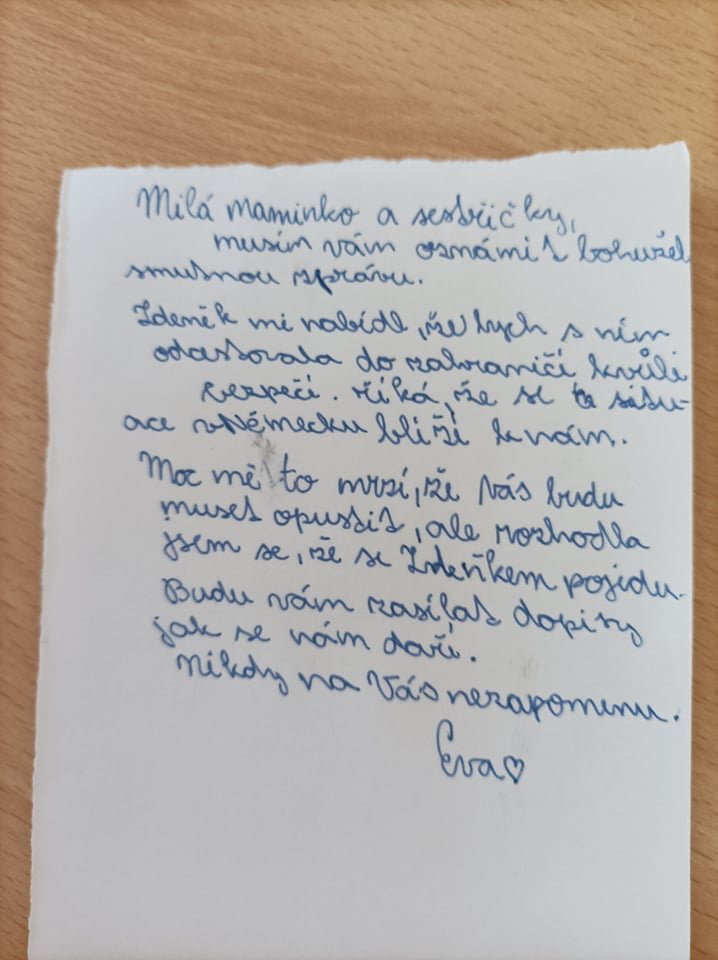 Milá maminko a sestřičky,
musím vám oznámit bohužel
smutnou zprávu.
Zdeněk mi nabídl, že bych s ním
odcestovala do zahraničí kvůli
bezpečí. Říká, že se ta situ-
ace v Německu blíží k nám.
Moc mě to mrzí, že Vás budu
muset opustit, ale rozhodla
jsem se, že se Zdeňkem pojedu.
Budu vám zasílat dopisy
jak se nám daří.
Nikdy na Vás nezapomenu.
Eva♡